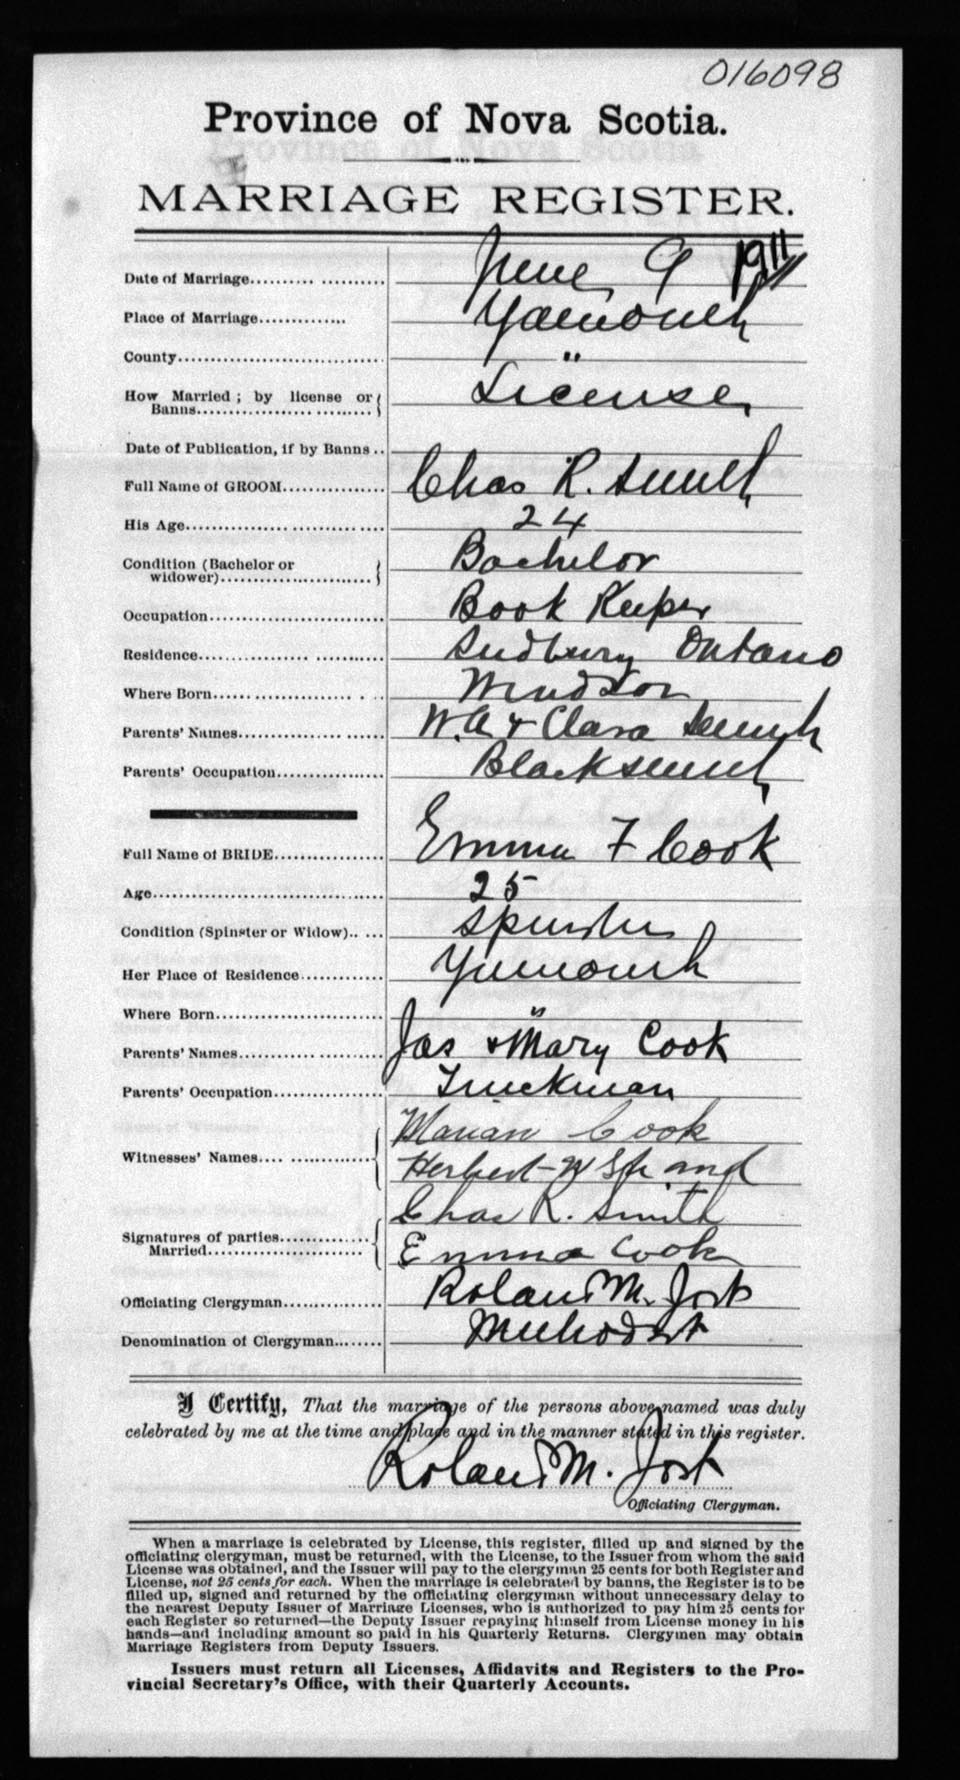 016098
Province of Nova Scotia.
MARRIAGE REGISTER.
Date of Marriage.......... ........... June 9 1911
Place of Marriage.............. Yarmouth
County................................... "
How Married ; by license or License
Banns...................... ...........
Date of Publication, if by Banns ..
Full Name of GROOM................. Chas R. Smith
His Age................... .............. 24
Condition (Bachelor or Bachelor
widower)..........................
Occupation............................. Book Keeper
Residence................ ............. Sudbury Ontario
Where Born....................... . .. Windsor
Parents' Names................ ....... W. A & Clara Smith
Parents' Occupation.................. Blacksmith
Full Name of BRIDE.................. Emma F Cook
Age....................................... 25
Condition (Spinster or Widow).. ... Spinster
Her Place of Residence............. Yarmouth
Where Born............................ "
Parents' Names........................ Jas & Mary Cook
Parents' Occupation.................. Truckman
Marian Cook
Witnesses' Names.... ............... Herbert W
Chas R. Smith
Signatures of parties...............
Married............................ Emma Cook
Officiating Clergyman................ Roland M. Jost
Denomination of Clergyman........ Methodist
I Certify, That the marriage of the persons above named was duly
celebrated by me at the time and place and in the manner stated in this register.
Roland M. Jost
Officiating Clergyman.
When a marriage is celebrated by License, this register, filled up and signed by the
officiating clergyman, must be returned, with the License, to the Issuer from whom the said
License was obtained, and the Issuer will pay to the clergyman 25 cents for both Register and
License, not 25 cents for each. When the marriage is celebrated by banns, the Register is to be
filled up, signed and returned by the officiating clergyman without unnecessary delay to
the nearest Deputy Issuer of Marriage Licenses, who is authorized to pay him 25 cents for
each Register so returned—the Deputy Issuer repaying himself from License money in his
hands—and including amount so paid in his Quarterly Returns. Clergymen may obtain
Marriage Registers from Deputy Issuers.
Issuers must return all Licenses, Affidavits and Registers to the Pro-
vincial Secretary's Office, with their Quarterly Accounts.